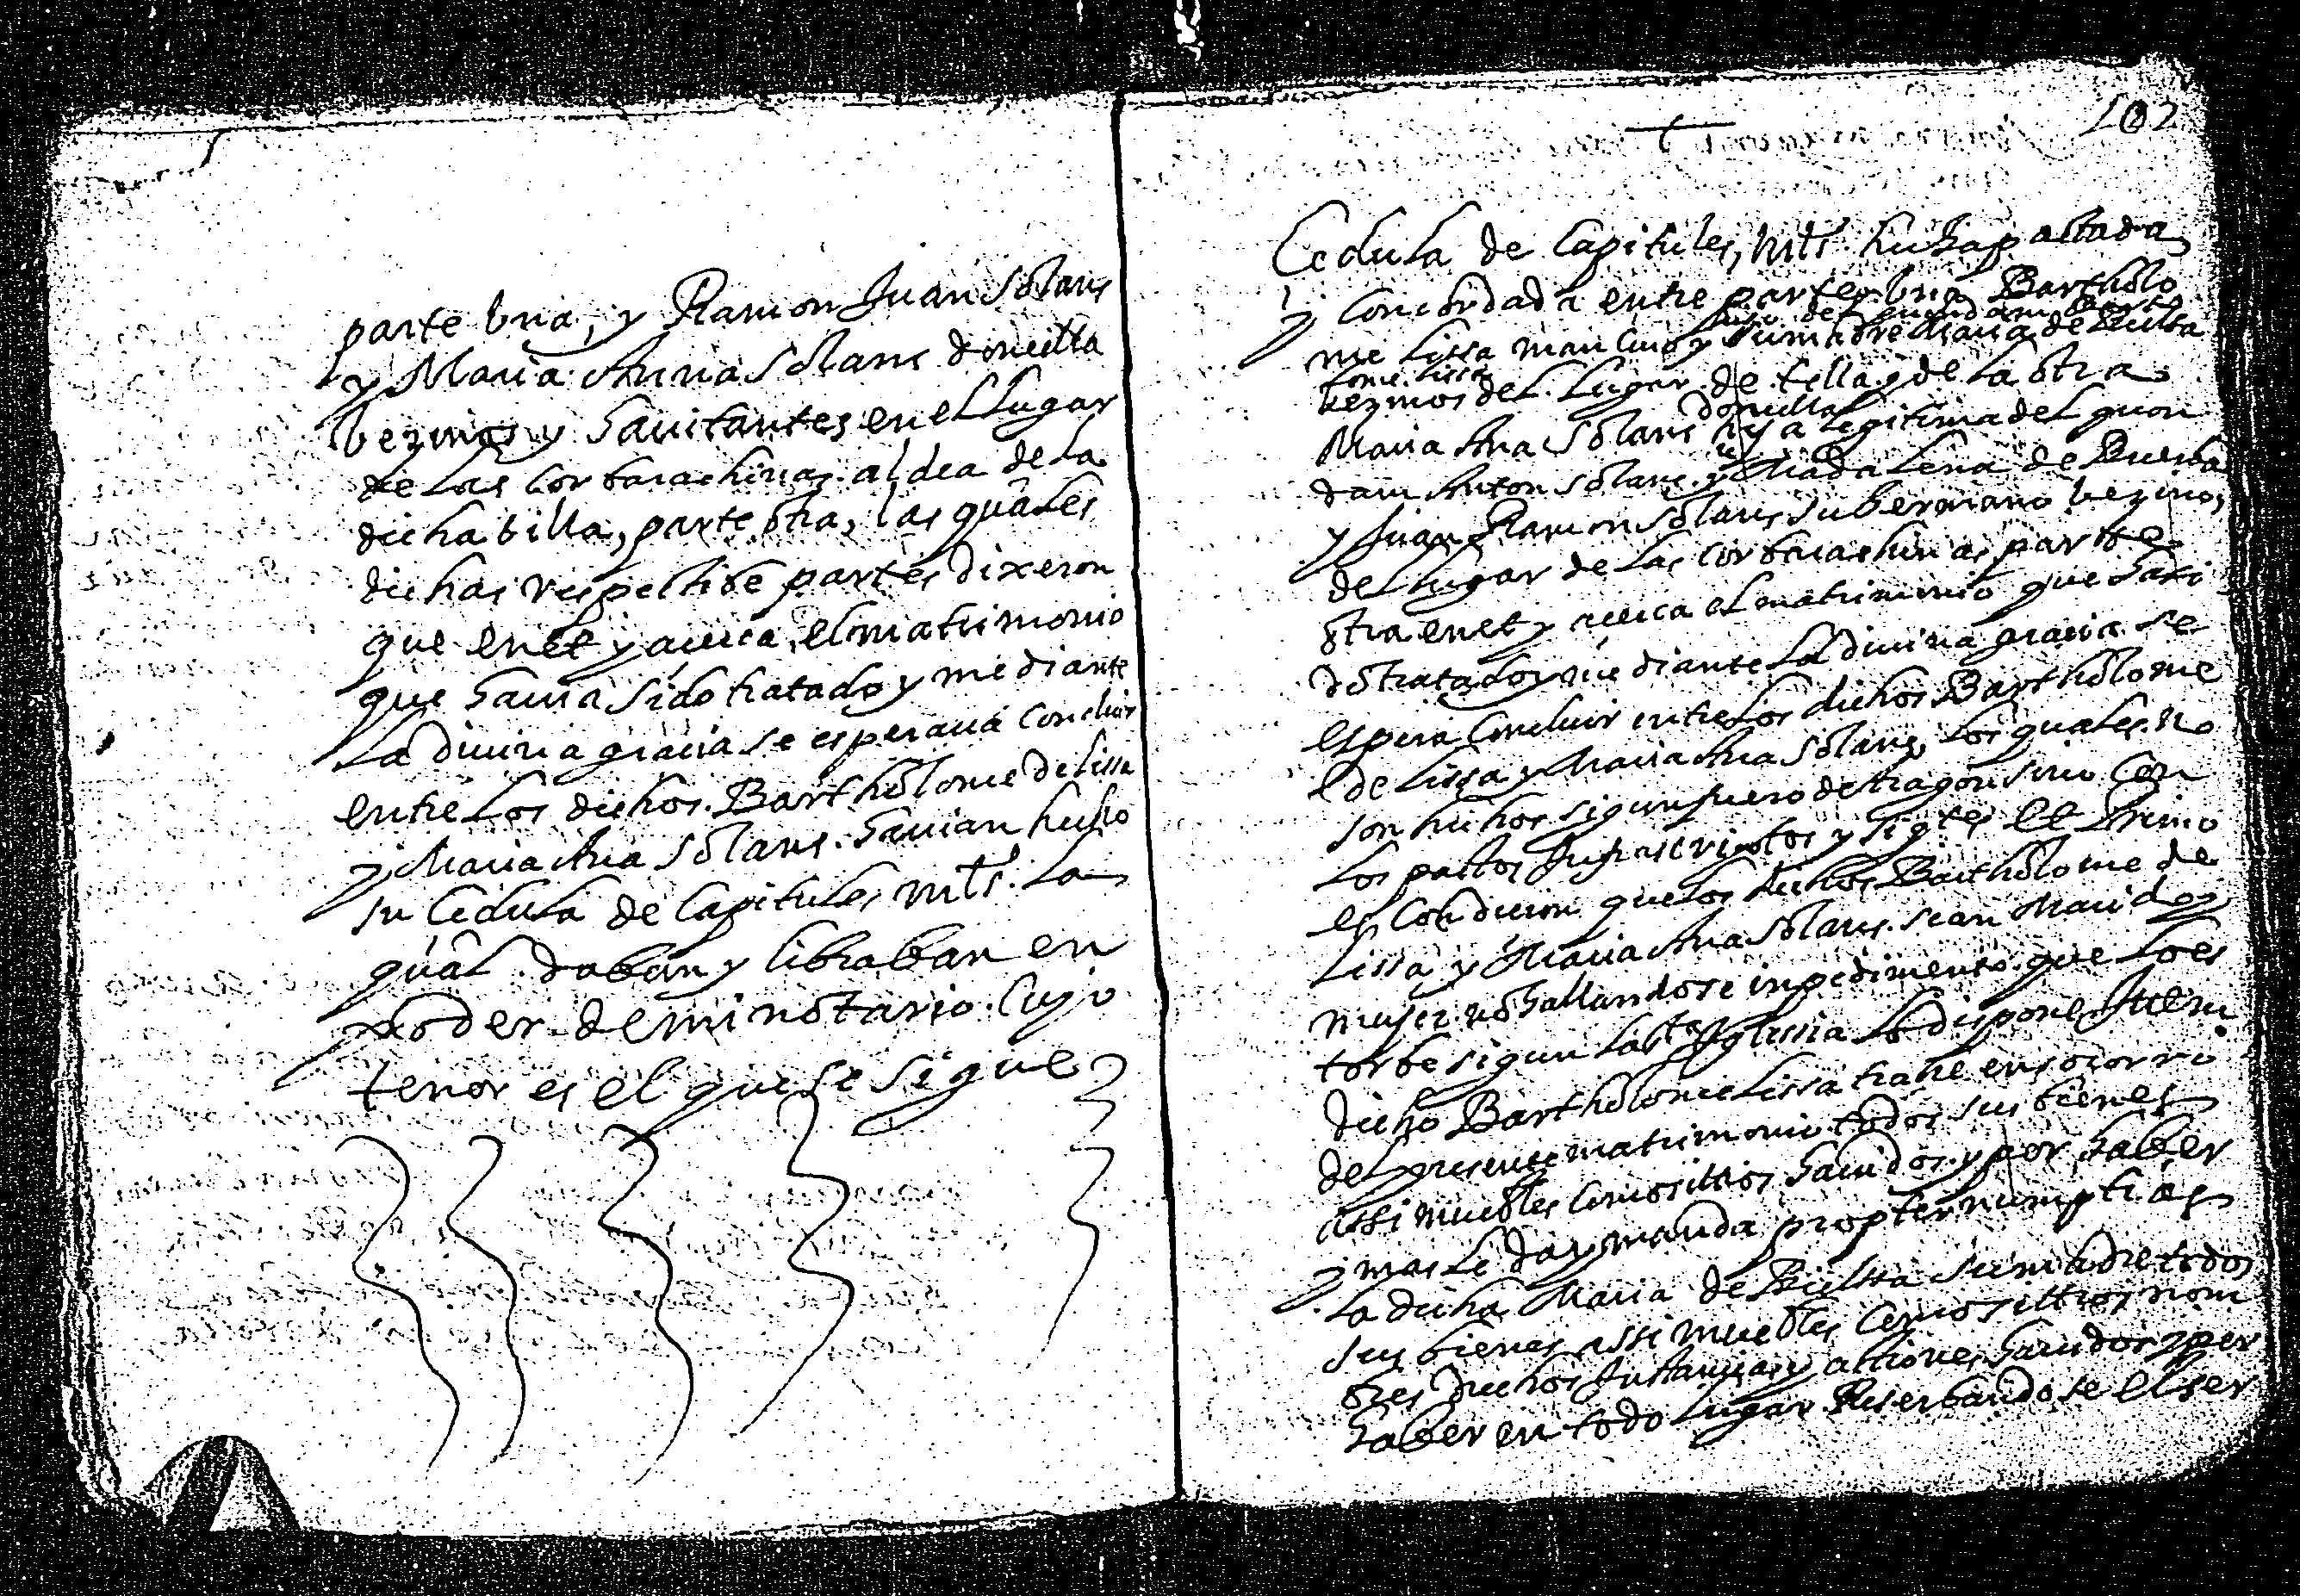 parte vna, y Ramon Juan Solans
y Maria Anna Solans doncella
vezinos y hauitantes en el Lugar
de Las Corbarachinas aldea de La
dicha billa, parte otra, las quales
dichas respectibe partes dixeron
que en et y acerca el matrimonio
que hauia sido tratado y mediante
La diuina gracia se esperaua concluir
entre Los dichos Bartholome de Lissa
y Maria Ana Solans. hauian hecho
su Cedula de Capitules mtˢ. La
qual daban y libraban en
poder de mi notario. Cuyo
tenor es el que se sigue
102
Cedula de Capitules mtˢ hecha pactada
y Concordada entre partes vna Bartholo
me Lissa mancebo hijo del quondam Bartolome Lissa y su madre Maria de
vezinos del Lugar de tella y de La otra
Maria Ana Solans donzella hija Legitima del quon
dam Anton Solans y Madalena de
y Juan Ramon Solans su hermano vezinos
del lugar de Las Corbarachinas parte
otra en et y acerca el matrimonio que ha si
do tratado y mediante La diuina gracia se
espera Concluir entre Los dichos Bartholome
de Lissa y Maria Ana Solans, Los quales no
son hechos sigun fuero de Aragon sino Con
Los pactos Infrascriptos y sigᵗᵉˢ Et Primo
es Condicion que Los dichos Bartholome de
Lissa y Maria Ana Solans sean Marido y
mujer no hallandose inpedimento que Lo es
torbe sigun La Sᵗᵃ Yglessia Lo dispone Item
dicho Bartholome Lissa trahe en socorro
del presente matrimonio todos sus bienes
assi muebles Como sittios hauidos y por haber
y mas Le da y manda propter numptias
La dicha Maria de su madre todos
sus bienes assi muebles Como sittios nom
bres drechos Instancias y acthiones hauidos y por
haber en todo Lugar Reserbandose el ser